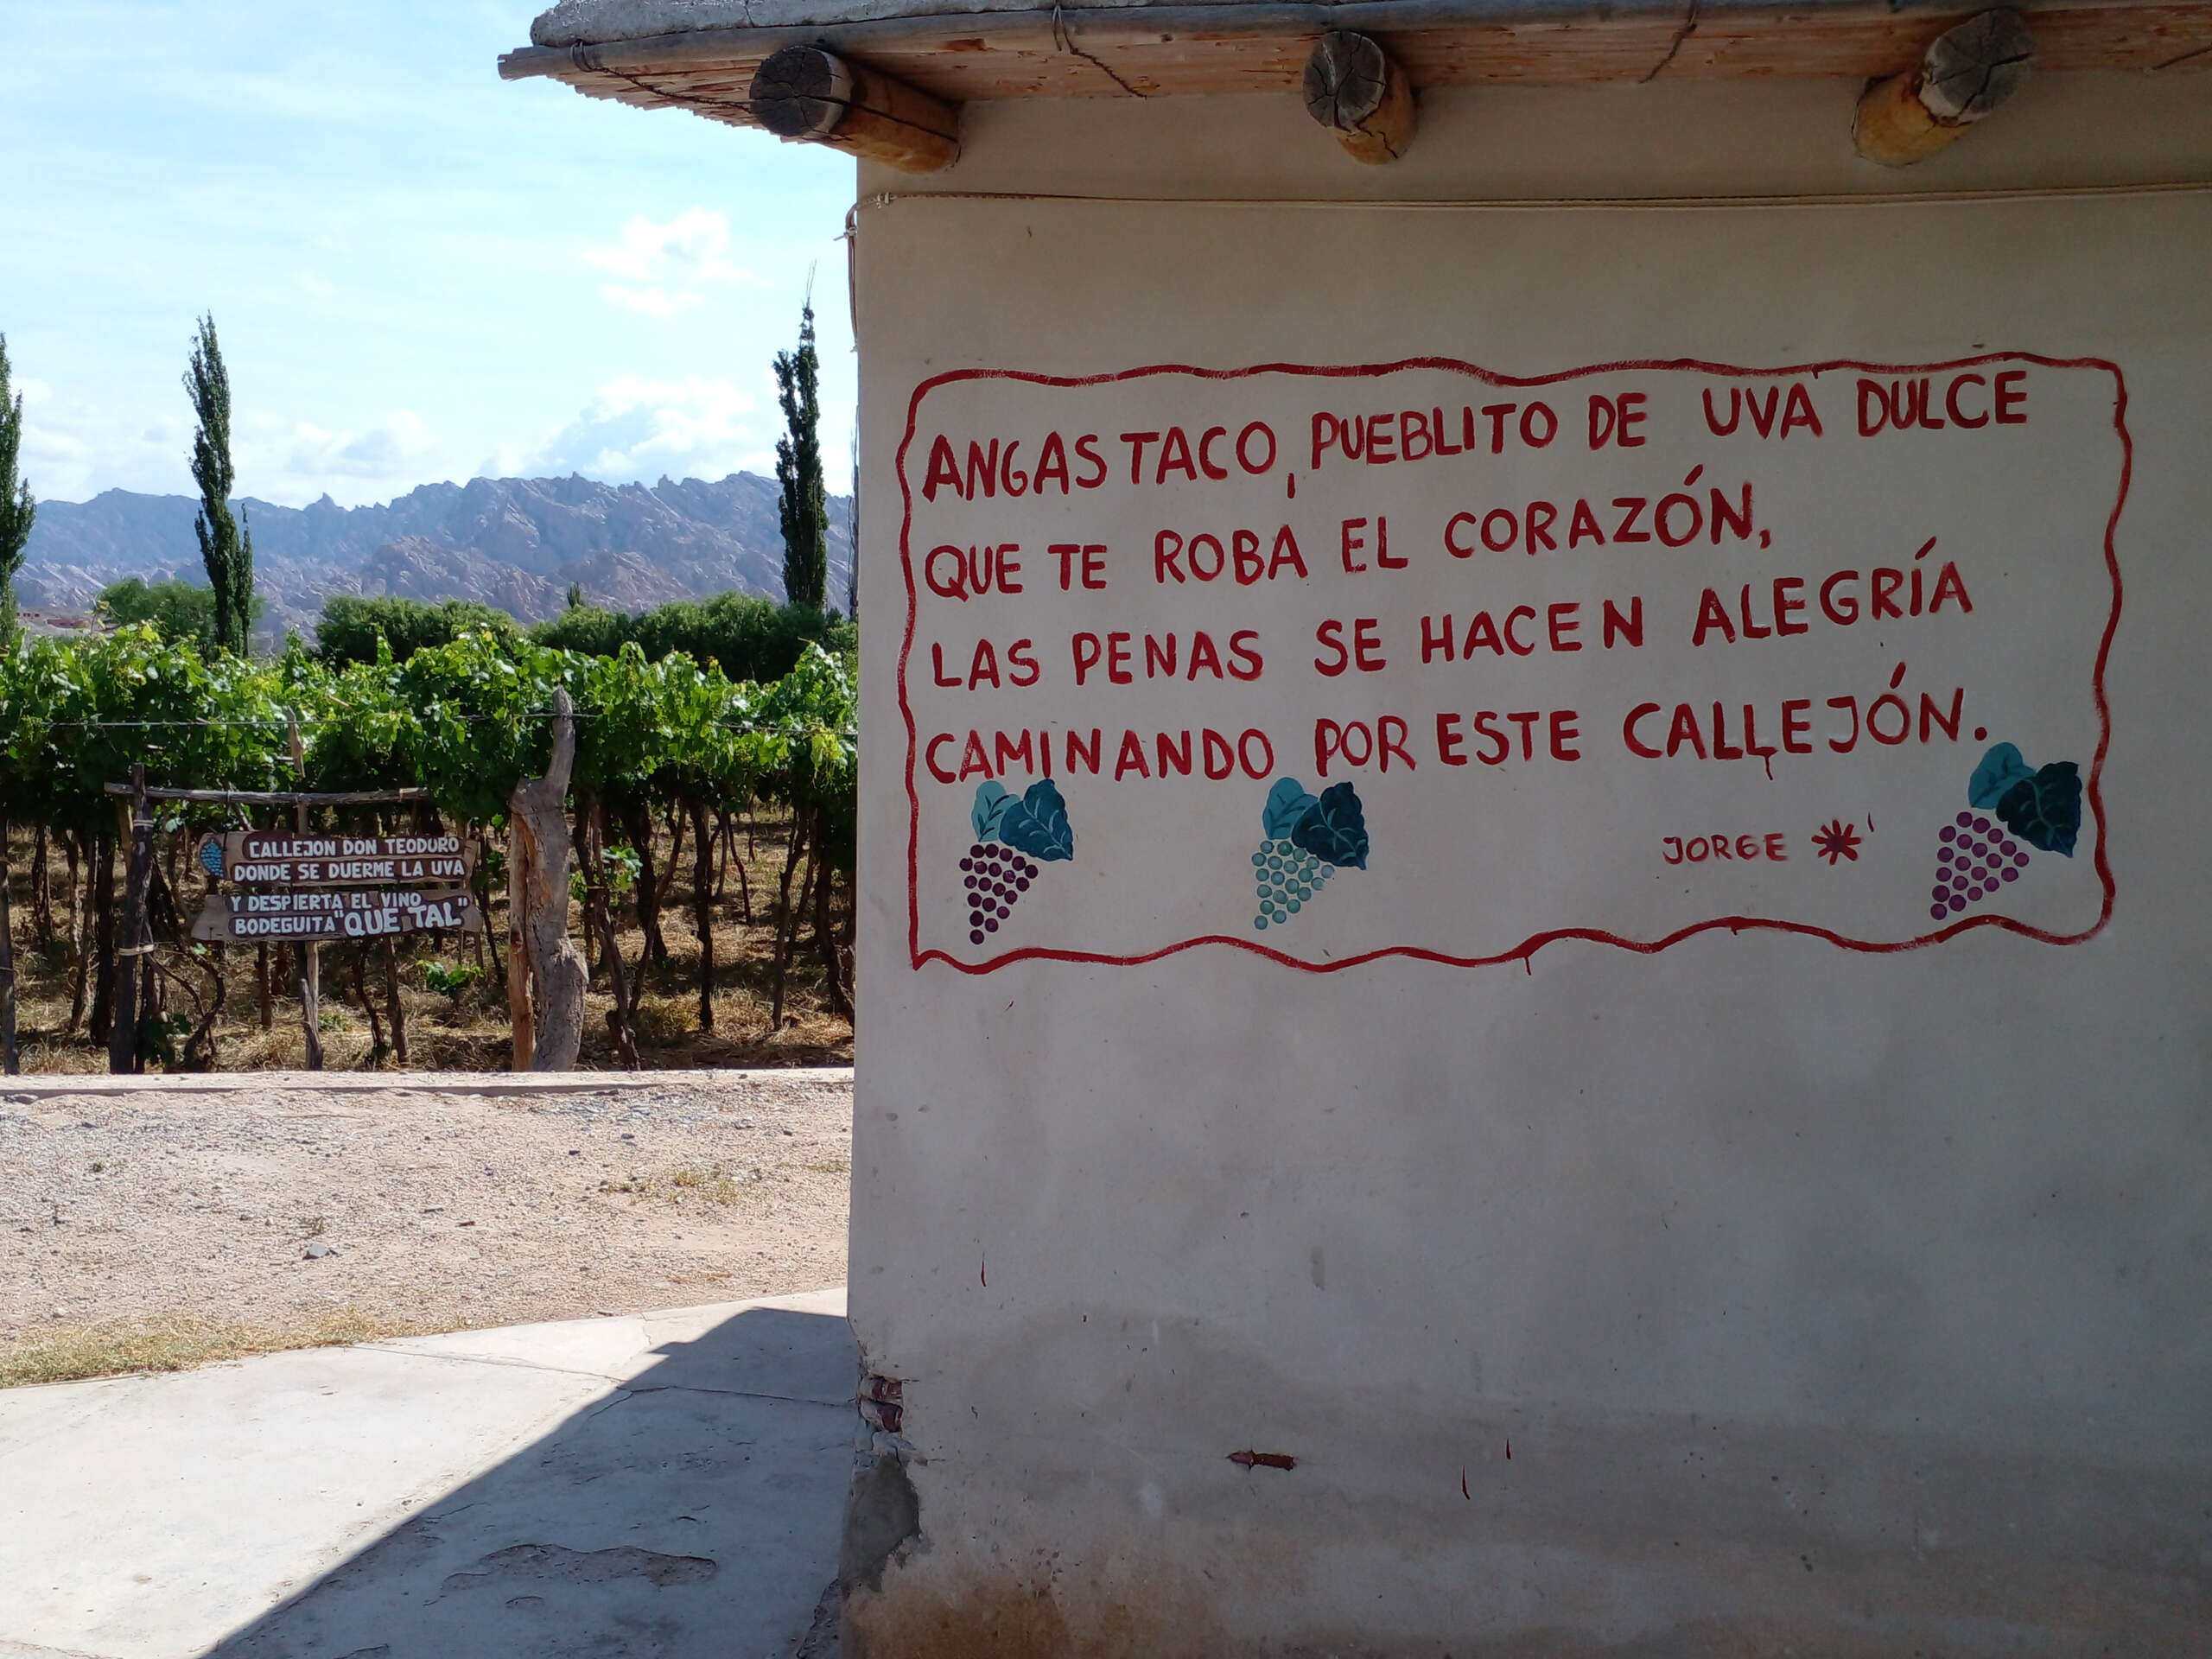 ANGASTACO, PUEBLITO DE UVA DULCE
QUE TE ROBA EL CORAZÓN,
LAS PENAS SE HACEN ALEGRÍA
CAMINANDO POR ESTE CALLEJÓN.
JORGE
CALLEJON DON TEODURO
DONDE SE DUERME LA UVA
Y DESPIERTA EL VINO
BODEGUITA "QUE TAL"